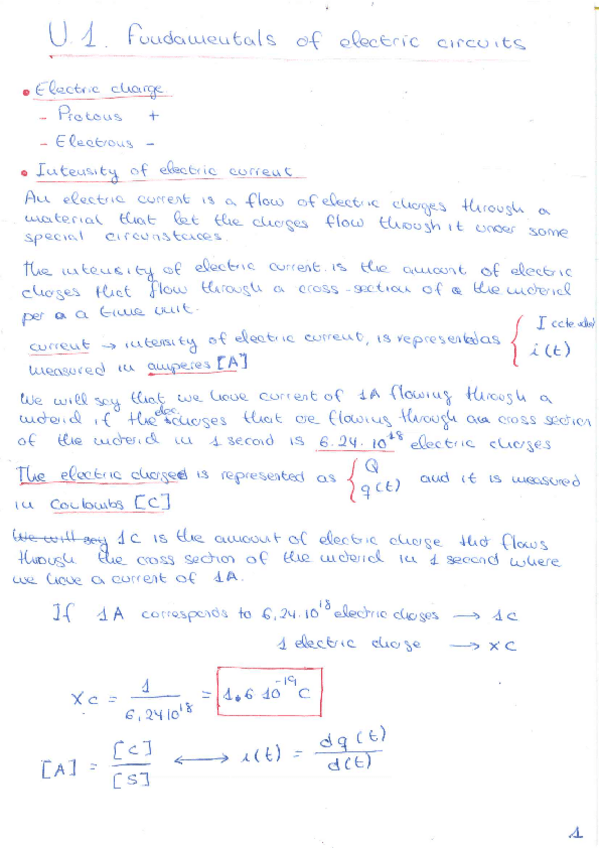 U.1. Fundamentals of electric circuits
• Electric charge
- Protons +
- Electrons -
• Intensity of electric current
An electric current is a flow of electric charges through a
material that let the charges flow through it under some
special circunstances.
The intensity of electric current is the amount of electric
charges that flow through a cross-section of a the material
per a a time unit.
current → intensity of electric current, is represented as { I (cte value)
i(t)
measured in amperes [A]
We will say that we have current of 1A flowing through a
material if the elec. charges that are flowing through a cross section
of the material in 1 second is 6.24.10^18 electric charges
The electric charged is represented as { Q
q(t) and it is measured
in Coulombs [C]
We will say 1C is the amount of electric charge that flows
through the cross section of the material in 1 second where
we have a current of 1A.
If 1A corresponds to 6,24.10^18 electric charges → 1C
1 electric charge → x C
x C = 1 / 6,24 10^18 = 1.6 10^-19 C
[A] = [C] / [S] ⟷ i(t) = dq(t) / d(t)
1